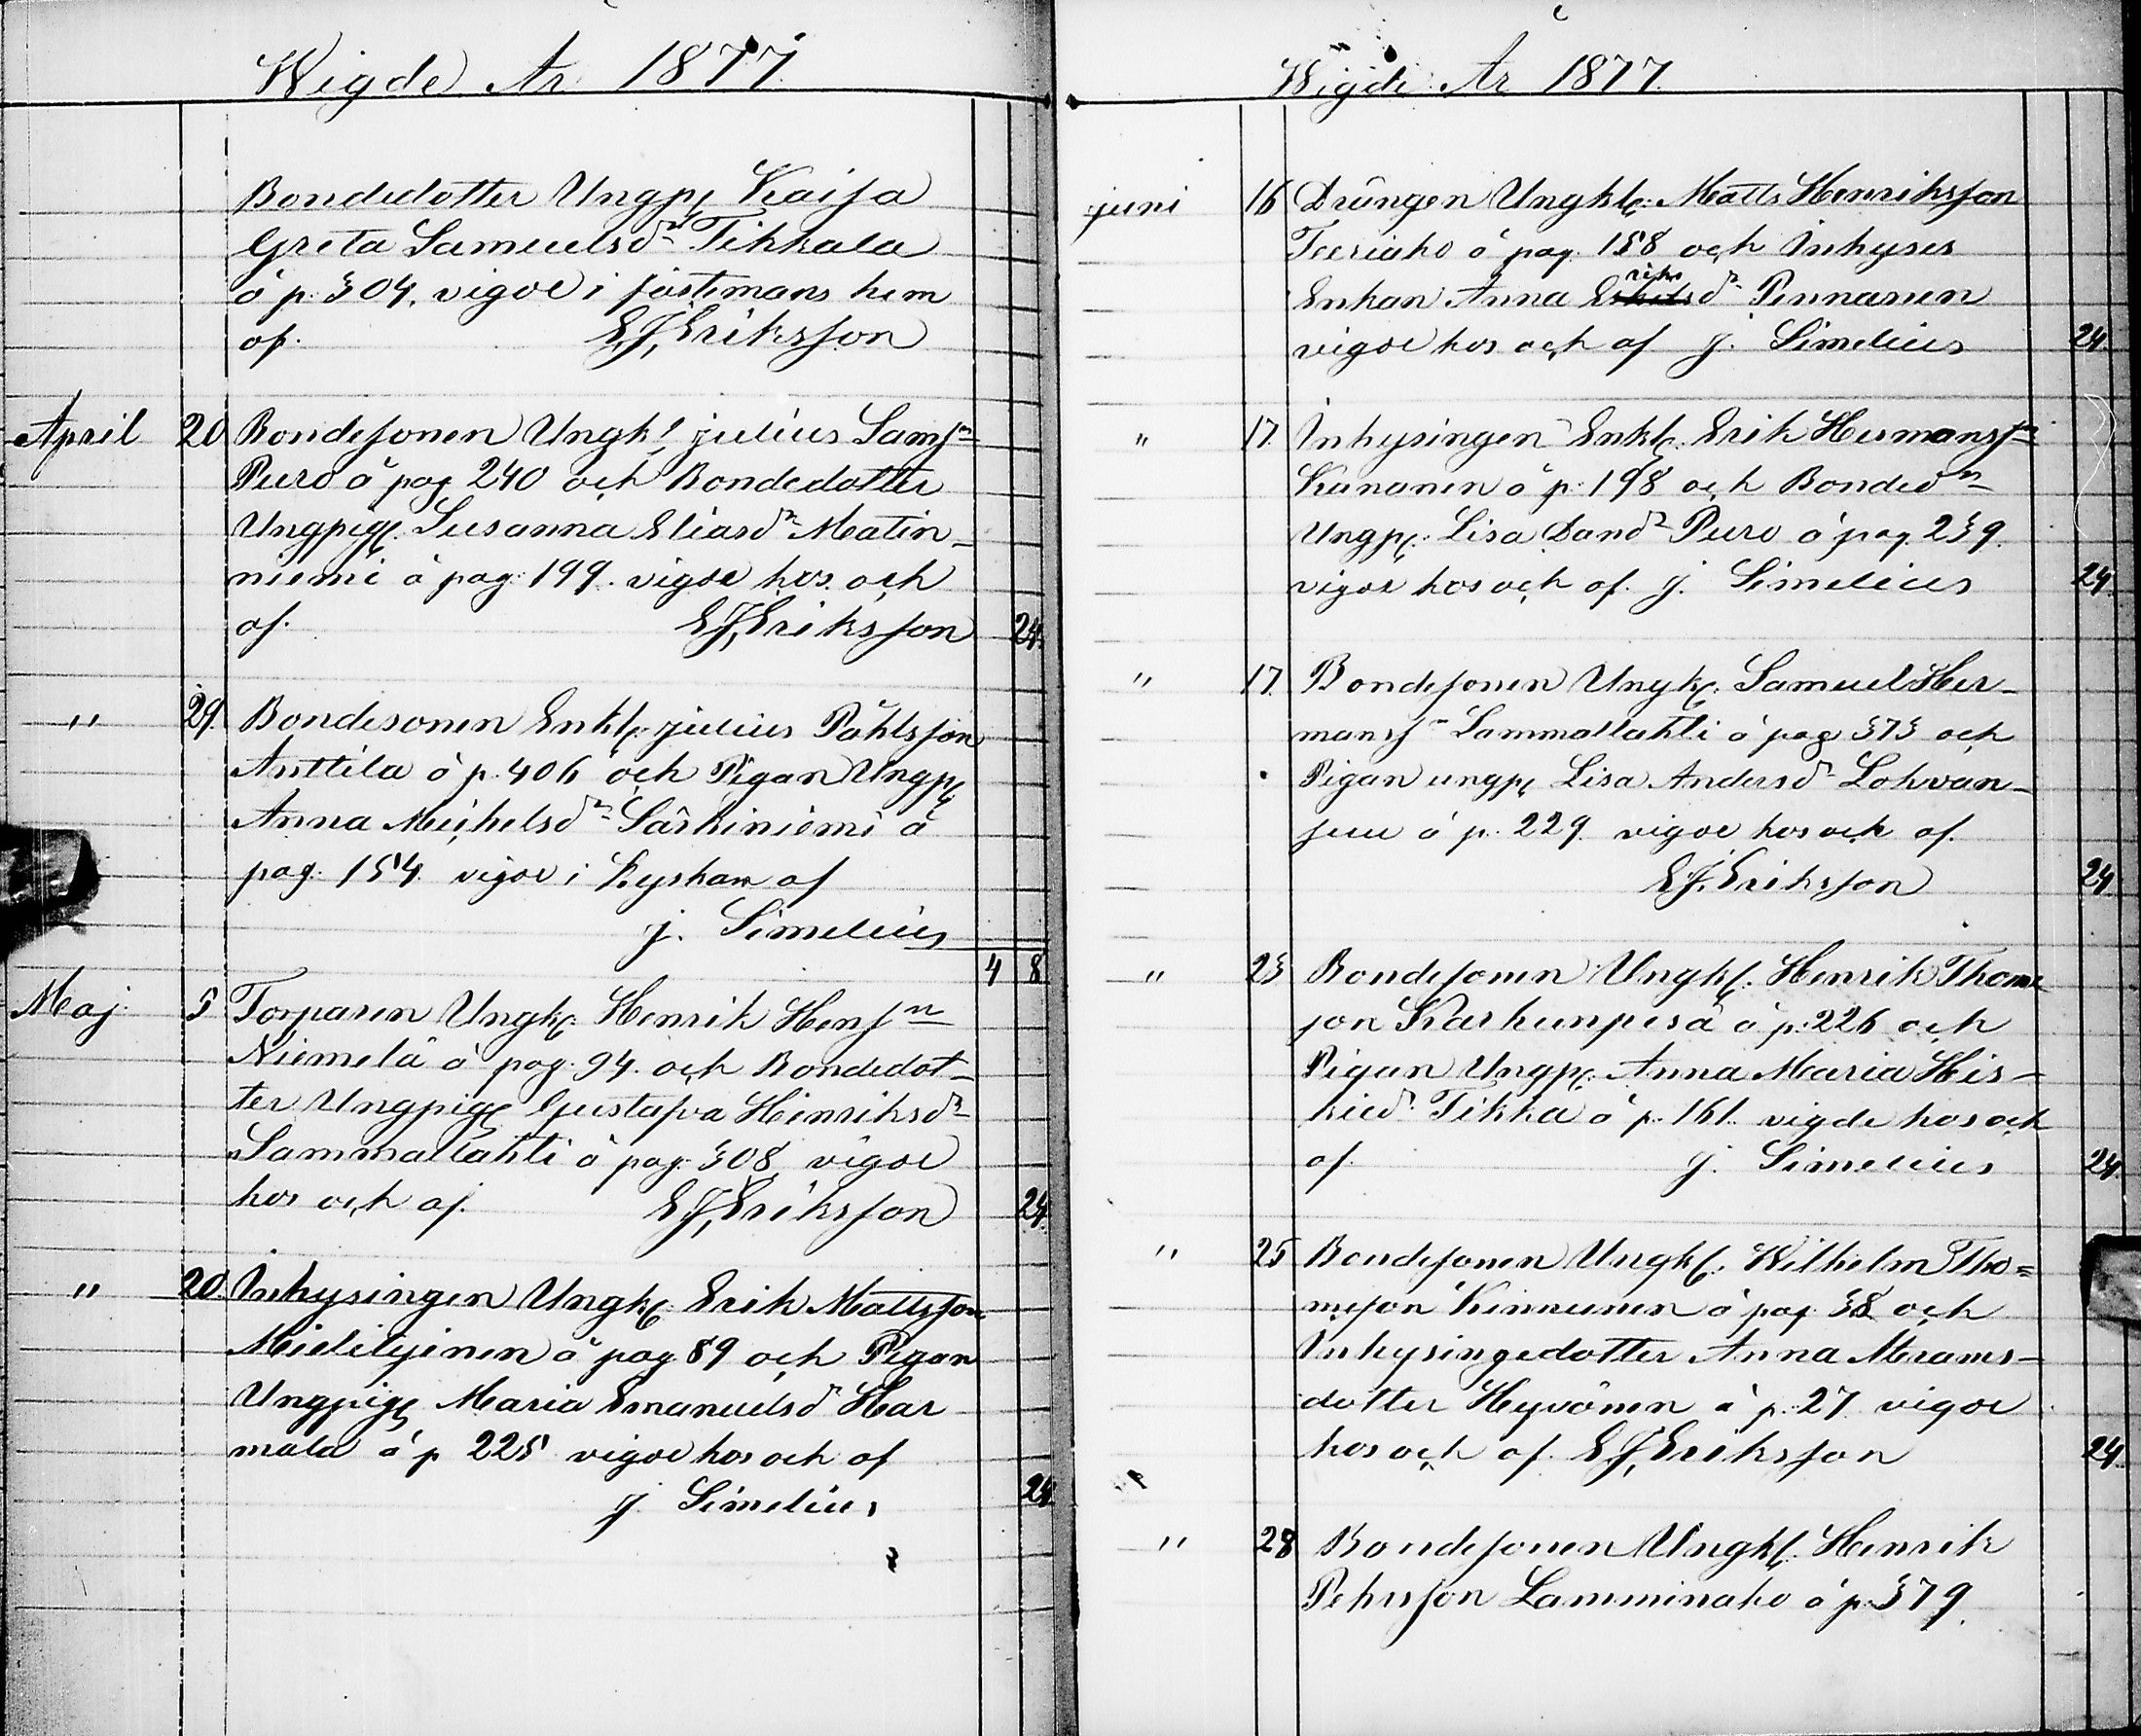 Wigde År 1877.
Bondedotter Ungp. Kaisa
Greta Samuelsdr Tikkala
å p. 304. vigde i fästemans hem
af. E.J. Eriksson
April 20 Bondesonen Ungk. Julius Samsn
Puro å pag 240 och Bondedotter
Ungpig. Susanna Eliasdr Matin-
niemi å pag. 199. vigde hos och
af. E.J. Eriksson 24.
" 29. Bondesonen Enkl. Julius Påhlsson
Anttila å p. 406 och Pigan Ungp.
Anna Michelsdr Särkiniemi å
pag. 154. vigde i Kyrkan af
J. Simelius
4 8
Maj 5 Torparen Ungk. Henrik Hensn
Niemelä å pag. 94. och Bondedot-
ter Ungpig. Gustafva Henriksdr
Sammallahti å pag. 308, vigde
hos och af. E.J. Eriksson 24.
" 20 Inhysingen Ungk. Erik Mattsson
Mielityinen å pag 89 och Pigan
Ungpig. Maria Emanuelsdr Har
mala å p 225 vigde hos och af
J. Simelius 24
Wigde År 1877.
juni 16 Drängen Ungkl. Matts Henriksson
Teeriaho å pag. 158 och Inhyses
riks
Enkan Anna Ersdr Pennanen
vigde hos och af J. Simelius 24.
" 17. Inhysingen Enkl. Erik Hermanssn
Kananen å p. 198 och Bondedn
Ungp. Lisa Dandr Puro å pag. 239.
vigde hos och af. J. Simelius 24.
" 17. Bondesonen Ungk. Samuel Her-
manss Sammallahti å pag 373 och
Pigan ungp. Lisa Andersdr Lohvan-
suu å p. 229. vigde hos och af.
E.J. Eriksson 24.
" 23 Bondesonen Ungk. Henrik Thome
son Karhunpesä å p. 226 och
Pigan Ungp. Anna Maria His-
kiedr Tikka å p. 161. vigde hos och
af. J. Simelius 24.
" 25 Bondesonen Ungk. Wilhelm Tho=
meson Kinnunen å pag 38 och
Inhysingedotter Anna Merams-
dotter Heyvönen å p. 27. vigde
hos och af. E.J. Eriksson 24.
" 28 Bondesonen Ungk. Henrik
Pehrsson Lamminaho å p. 379.